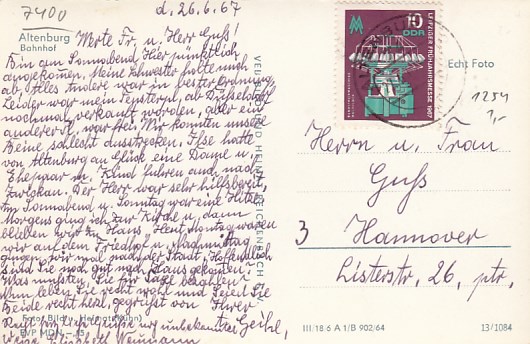 7400
d. 26.6.67
Altenburg
Bahnhof
Werte Fr. u. Herr Guß!
Bin am Sonnabend hier pünktlich
angekommen. Meine Schwester holte mich
ab, Alles Andere war in bester Ordnung,
Leider war mein Fensterpl. ab Düsseldorf
nochmal verkauft worden, aber ein
anderer war frei. Wir konnten unsere
Beine schlecht ausstrecken. Ilse hatte
von Altenburg an Glück eine Dame u.
Ehepaar m. Kind fuhren auch nach
Zwickau. Der Herr war sehr hilfsbereit,
Am Sonnabend u. Sonntag war eine Hitze,
Morgens ging ich zur Kirche u. dann
blieben wir im Haus. Heut Montag waren
wir auf dem Friedhof u. Nachmittag
gingen wir mal nach der Stadt. Hoffentlich
sind Sie noch gut nach Haus gekommen.
Was mußten Sie für Taxe bezahlen?
Nun leben Sie recht wohl und seien Sie
Beide recht herzl. gegrüßt von Ihrer
unbekannter
Elisabeth Neumann
Foto: Bild Helmut Kühn
EVP MDN -.15
VEB BILD UND HEIMAT REICHENBACH
LEIPZIGER FRÜHJAHRSMESSE 1967
10
DDR
Echt Foto
1254
Herrn u. Frau
Guß
3 Hannover
Listerstr. 26, ptr.
III/18 6 A 1/B 902/64
13/1084